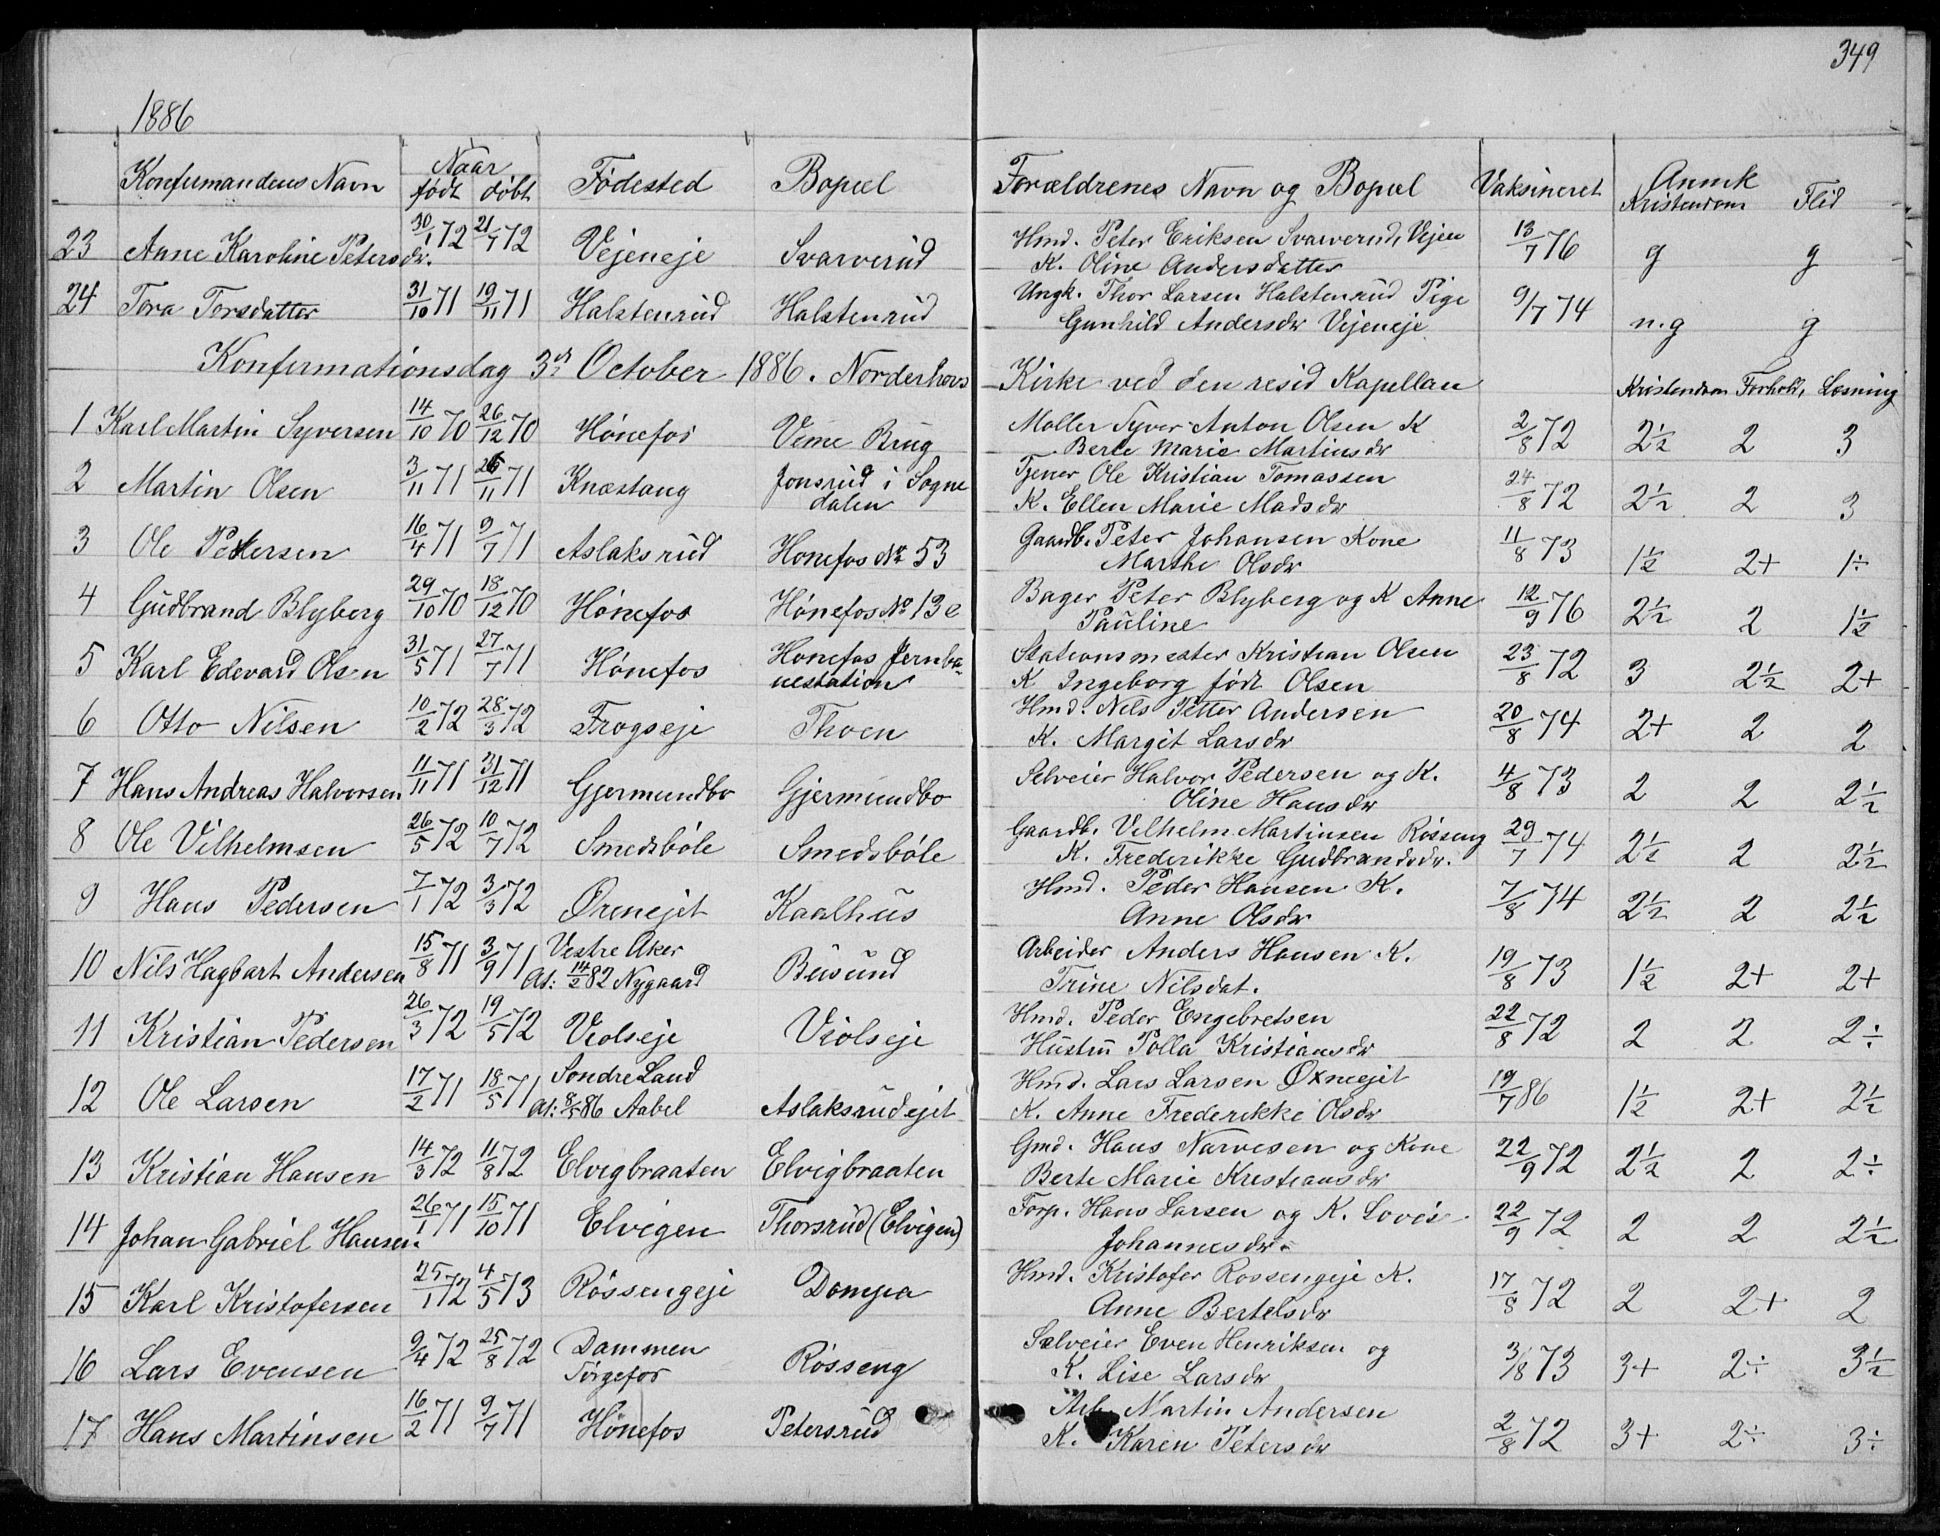 349
1886
Konfirmandens Navn Naar født døbt Fødested Bopæl Forældrenes Navn og Bopæl Vaksineret Anmk Kristendom Flid
23 Anne Karoline Petersdr. 30/1 72 21/7 72 Vejeneje Svarverud Hmd. Peter Eriksen Svarverud, Vejen 13/7 76 g g
K. Oline Andersdatter
24 Tora Torsdatter 31/10 71 19/11 71 Halstenrud Halstenrud Ungk. Thor Larsen Halstenrud Pige 9/7 74 n.g g
Gunhild Andersdr Vejeneje
Konfirmationsdag 3die October 1886. Norderhovs Kirke ved den resid Kapellan Kristendom Forhold, Læsning
1 Karl Martin Syversen 14/10 70 26/12 70 Hønefos Veme Brug Møller Syver Anton Olsen K 2/8 72 2½ 2 3
Berte Marie Martinsdr
2 Martin Olsen 3/11 71 26/11 71 Knæstang Jonsrud i Sogne Tjener Ole Kristian Tomassen 24/8 72 2½ 2 3
dalen K. Ellen Marie Madsdr
3 Ole Petersen 16/4 71 9/7 71 Aslaksrud Honefos No 53 Gaardb. Peter Johansen Kone 11/8 73 1½ 2+ 1÷
Marthe Olsdr
4 Gudbrand Blyberg 29/10 70 18/12 70 Hønefos Hønefos No 13 e Bager Peter Blyberg og K Anne 12/9 76 2½ 2 1½
Pauline
5 Karl Edevard Olsen 31/5 71 27/7 71 Hønefos Honefos Jernba- Stationsmester Kristian Olsen 23/8 72 3 2½ 2+
nestation K Ingeborg født Olsen
6 Otto Nilsen 10/2 72 28/3 72 Frogseje Thoen Hmd. Nels Petter Andersen 20/8 74 2+ 2 2
K. Margit Larsdr
7 Hans Andreas Halvorsen 11/11 71 31/12 71 Gjermundbo Gjermundbo Selveier Halvor Pedersen og K. 4/8 73 2 2 2½
Oline Hansdr
8 Ole Vilhelmsen 26/5 72 10/7 72 Smedsbøle Smedsbøle Gaardb. Vilhelm Martinsen Røsseng 29/7 74 2½ 2 2½
K. Frederikke Gudbrandsdr.
9 Hans Pedersen 7/1 72 3/3 72 Ørenejet Kaalhus Hmd. Peder Hansen K. 7/8 74 2½ 2 2½
Anne Olsdr
10 Nils Hagbart Andersen 15/8 71 3/9 71 Vestre Aker Busund Arbeider Anders Hansen K. 19/8 73 1½ 2+ 2+
At: 14/2 82 Nygaard Trine Nilsdat.
11 Kristian Pedersen 26/3 72 19/5 72 Violseje Violseje Hmd. Peder Engebretsen 22/8 72 2 2 2÷
Hustru Polla Kristiansdr
12 Ole Larsen 17/2 71 18/5 71 Søndre Land Aslaksrudejet Hmd. Lars Larsen Øxneejet 19/7 86 1½ 2+ 2½
At: 8/5 86 Aabel K. Anne Frederikke Olsdr
13 Kristian Hansen 14/3 72 11/8 72 Elvigbraaten Elvigbraaten Gmd. Hans Narvesen og Kone 22/9 72 2½ 2 2÷
Berte Marie Kristiansdr
14 Johan Gabriel Hansen. 26/1 71 15/10 71 Elvigen Thorsrud (Elvigen) Forp. Hans Larsen og K. Lovis 22/9 72 2 2 2½
Johannesdr.
15 Karl Kristofersen 25/1 72 4/5 73 Røssengeje Dompa Hmd. Kristofer Rossengeje K. 17/8 72 2 2+ 2
Anne Bertelsdr
16 Lars Evensen 9/4 72 25/8 72 Dammen Røsseng Selveier Even Henriksen og 3/8 73 3+ 2÷ 3½
Jørgefos K. Lise Larsdr
17 Hans Martinsen 16/2 71 9/7 71 Hønefos Petersrud Arb. Martin Andersen 2/8 72 3+ 2÷ 3÷
K. Karen Petersdr